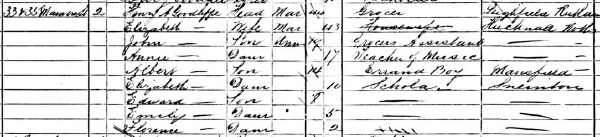 33 & 35 2 Head Mar Grocer
Elizabeth — Wife Mar 43 Housewife Hucknall Notts
John — Son 19 Grocers Assistant — —
Annie — Daur 17 Teacher of Music — —
Albert — Son 14 Errand Boy Mansfield —
Elizabeth — Daur 10 Scholar Sneinton —
Edward — Son 8 — — —
Emily — Daur 5 — —
Florence — Daur 2 — —